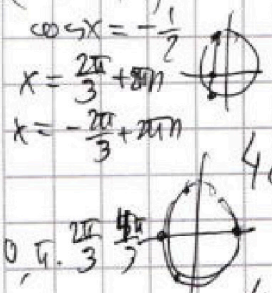 cos x = -1/2
x = 2π/3 + 2πn
x = -2π/3 + 2πn
0, π. 2π/3 4π/3
4